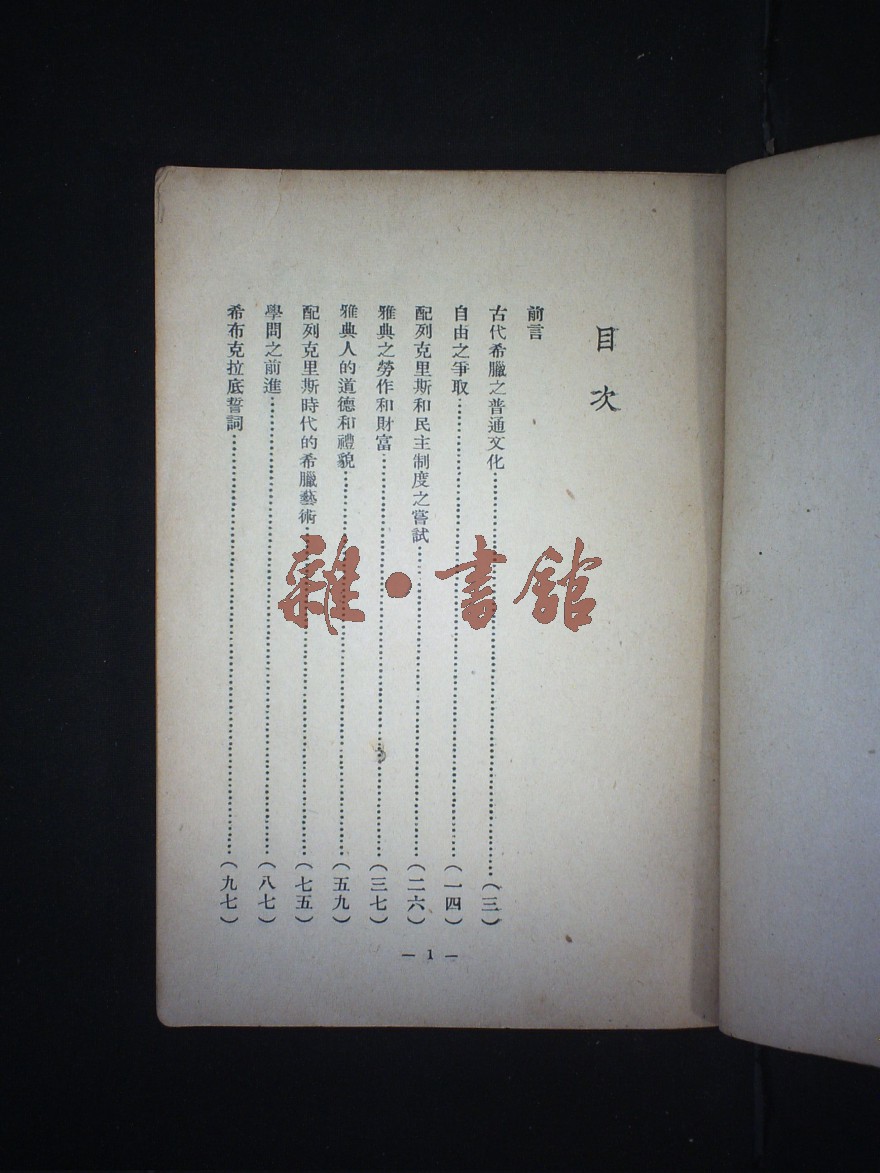 目次
前言
古代希臘之普通文化……(三)
自由之爭取……(一四)
配列克里斯和民主制度之嘗試……(二六)
雅典之勞作和財富……(三七)
雅典人的道德和禮貌……(五九)
配列克里斯時代的希臘藝術……(七五)
學問之前進……(八七)
希布克拉底誓詞……(九七)
— 1 —
雜·書館